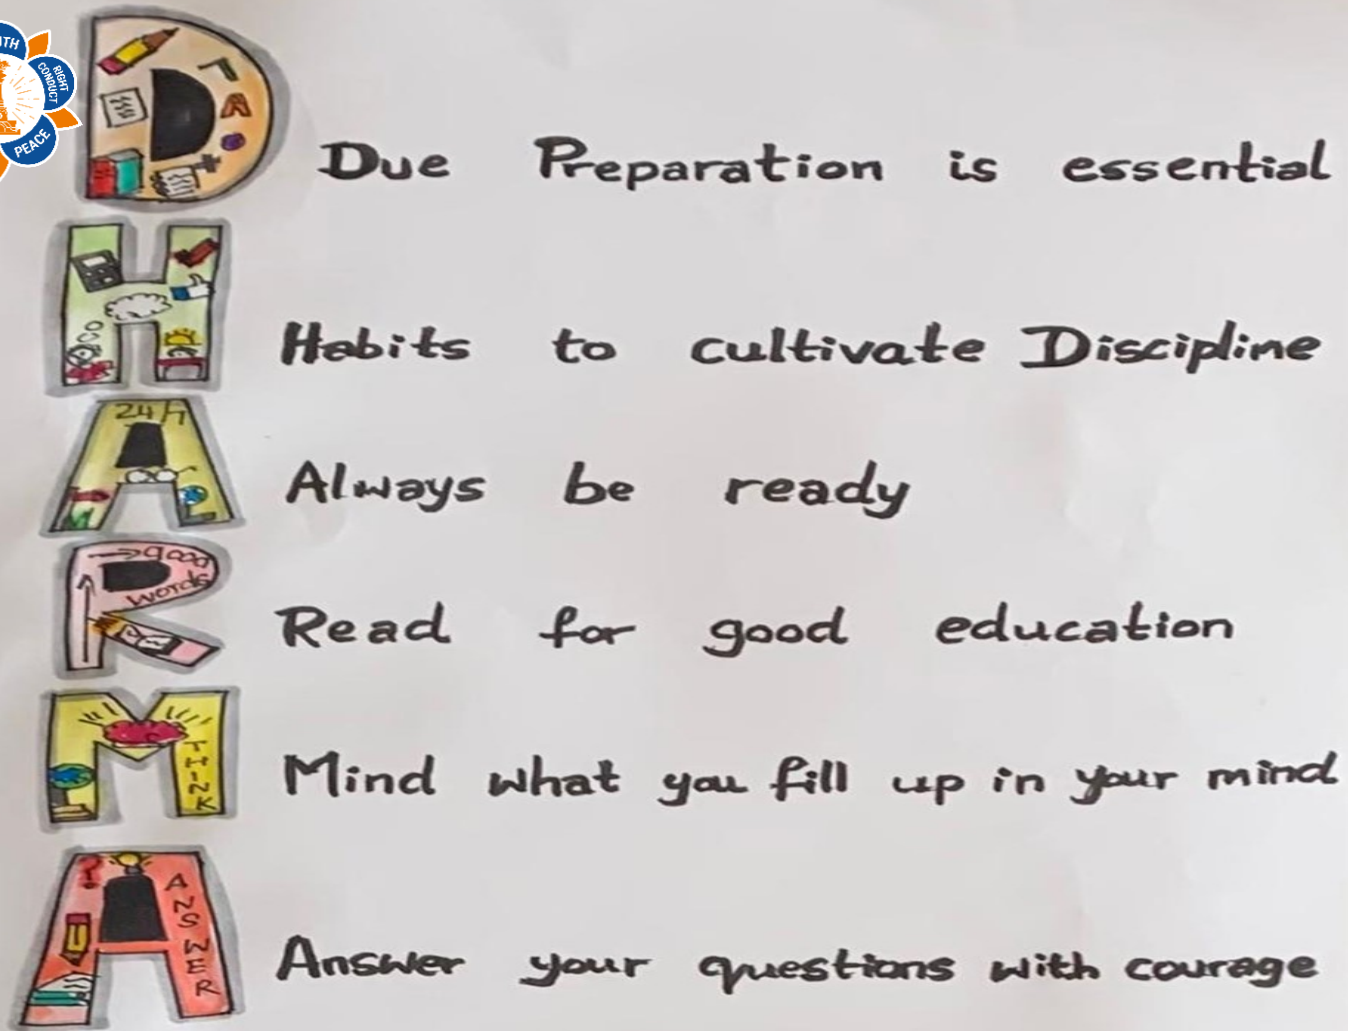 RIGHT CONDUCT
PEACE
D
Due Preparation is essential
H
Habits to cultivate Discipline
A
24/7
Always be ready
R
good
words
Read for good education
M
THINK
Mind what you fill up in your mind
A
ANSWER
Answer your questions with courage